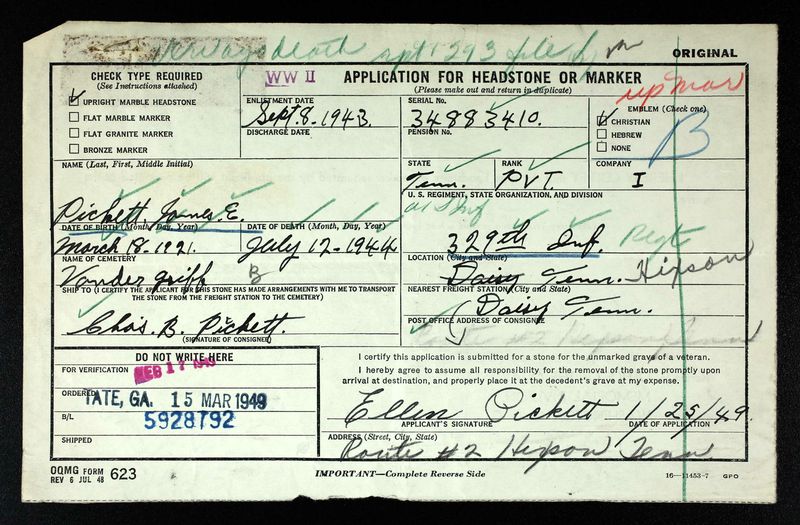 death rpt 293 file
ORIGINAL
CHECK TYPE REQUIRED
(See Instructions attached)
WW II
APPLICATION FOR HEADSTONE OR MARKER
(Please make out and return in duplicate)
up mar
UPRIGHT MARBLE HEADSTONE
FLAT MARBLE MARKER
FLAT GRANITE MARKER
BRONZE MARKER
ENLISTMENT DATE
Sept. 8. 1943.
DISCHARGE DATE
SERIAL No.
34883410.
PENSION No.
EMBLEM (Check one)
CHRISTIAN
HEBREW
NONE
B
NAME (Last, First, Middle Initial)
Pickett, James E.
STATE
Tenn.
RANK
PVT.
COMPANY
I
U. S. REGIMENT, STATE ORGANIZATION, AND DIVISION
329th Inf. Regt
DATE OF BIRTH (Month, Day, Year)
March 18. 1921.
DATE OF DEATH (Month, Day, Year)
July 12-1944
NAME OF CEMETERY
Vandergriff B
LOCATION (City and State)
Daisy Tenn. Hixson
SHIP TO (I CERTIFY THE APPLICANT FOR THIS STONE HAS MADE ARRANGEMENTS WITH ME TO TRANSPORT
THE STONE FROM THE FREIGHT STATION TO THE CEMETERY)
Chas. B. Pickett.
(SIGNATURE OF CONSIGNEE)
NEAREST FREIGHT STATION (City and State)
Daisy Tenn.
POST OFFICE ADDRESS OF CONSIGNEE
Route #2 Hixson Tenn
DO NOT WRITE HERE
FOR VERIFICATION
FEB 17 1949
ORDERED
TATE, GA. 15 MAR 1949
B/L
5928792
SHIPPED
I certify this application is submitted for a stone for the unmarked grave of a veteran.
I hereby agree to assume all responsibility for the removal of the stone promptly upon
arrival at destination, and properly place it at the decedent's grave at my expense.
Ellen Pickett 1/25/49.
APPLICANT'S SIGNATURE
DATE OF APPLICATION
ADDRESS (Street, City, State)
Route #2 Hixson Tenn
OQMG FORM
REV 6 JUL 48
623
IMPORTANT—Complete Reverse Side
16—11453-7 GPO